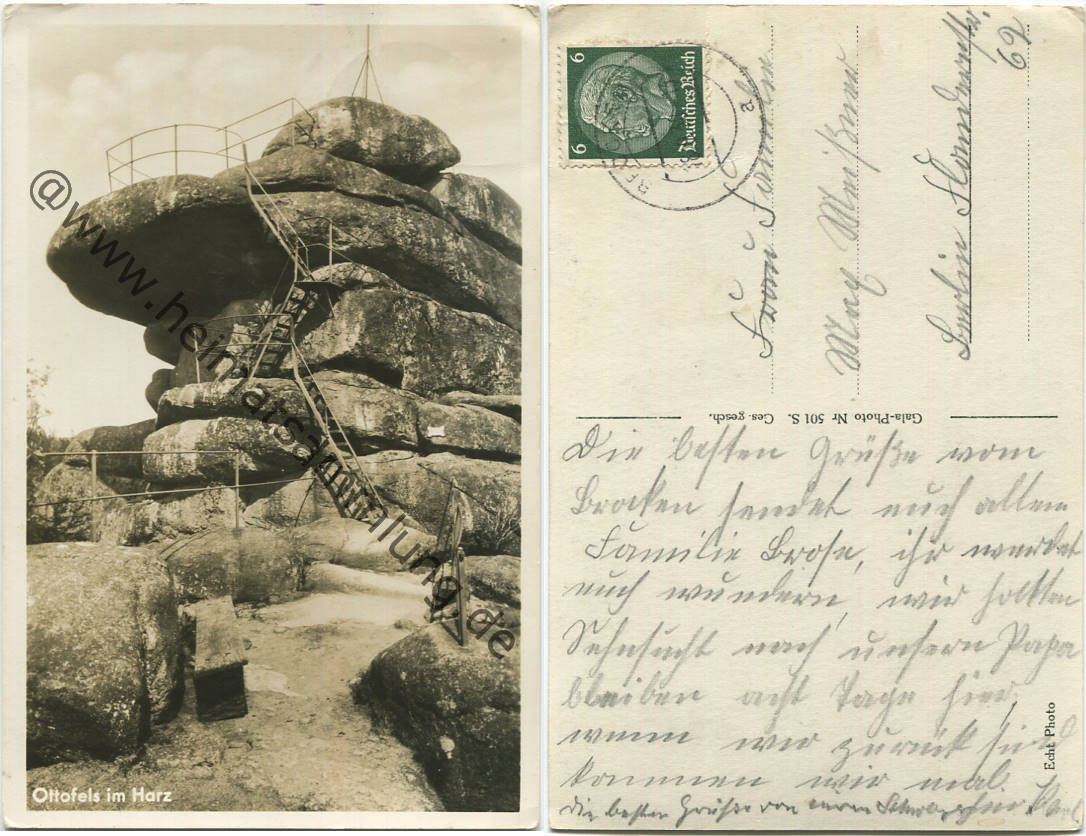 Ottofels im Harz
@www.heimatsammlung.de
6 6
Deutsches Reich
Familie
Max Meißner
Berlin
62
Gala-Photo Nr 501 S. Ges. gesch.
Die besten Grüße vom
Brocken sendet euch allen
Familie Brose, ihr werdet
euch wundern, wir hatten
Sehnsucht nach unsern Papa
bleiben acht Tage hier,
wenn wir zurück sind
kommen wir mal.
die besten Grüße von
Echt Photo